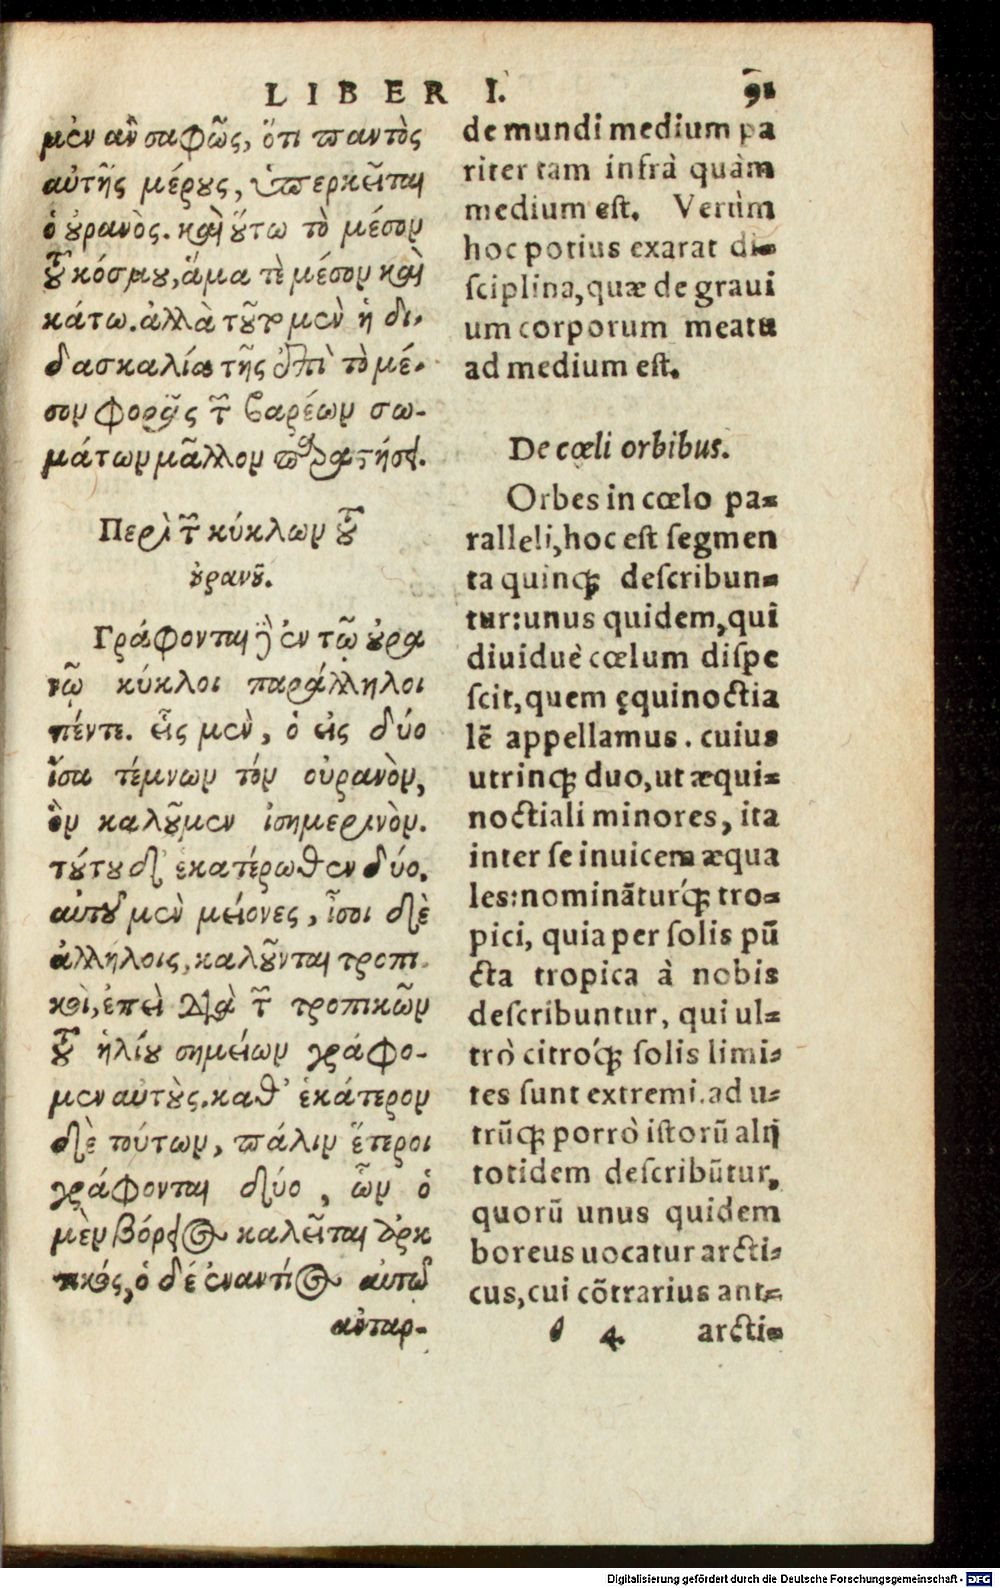 LIBER I. 91
μὲν ἂν σαφῶς, ὅτι παντὸς
αὐτῆς μέρους, ὑπερκεῖται
ὁ οὐρανὸς. καὶ οὕτω τὸ μέσον
τοῦ κόσμου, ἅμα τὲ μέσον καὶ
κάτω. ἀλλὰ τοῦτο μὲν ἡ δι-
δασκαλία τῆς ἐπὶ τὸ μέ-
σον φορᾶς τῶν βαρέων σω-
μάτων μᾶλλον παραστήσει.
Περὶ τῶν κύκλων τοῦ
οὐρανοῦ.
Γράφονται δὲ ἐν τῷ οὐρα
νῷ κύκλοι παράλληλοι
πέντε. εἷς μὲν, ὁ εἰς δύο
ἴσα τέμνων τόν οὐρανὸν,
ὃν καλοῦμεν ἰσημερινὸν.
τούτου δ' ἑκατέρωθεν δύο.
αὐτοῦ μὲν μείονες, ἶσοι δὲ
ἀλλήλοις, καλοῦνται τροπι-
κοὶ, ἐπεὶ διὰ τῶν τροπικῶν
τοῦ ἡλίου σημείων γράφο-
μεν αὐτοὺς. καθ' ἑκάτερον
δὲ τούτων, πάλιν ἕτεροι
γράφονται δύο, ὧν ὁ
μὲν βόρειος καλεῖται ἀρκ
τικός, ὁ δέ ἐναντίος αὐτῷ
ἀνταρ-
de mundi medium pa
riter tam infrà quàm
medium est. Verùm
hoc potius exarat di-
sciplina, quæ de graui
um corporum meatu
ad medium est.
De cœli orbibus.
Orbes in cœlo pa-
ralleli, hoc est segmen
ta quinq; describun-
tur: unus quidem, qui
diuiduè cœlum dispe
scit, quem ęquinoctia
lē appellamus. cuius
utrinq; duo, ut æqui-
noctiali minores, ita
inter se inuicem æqua
les: nominātur´q; tro-
pici, quia per solis pū
cta tropica à nobis
describuntur, qui ul-
trò citró´q; solis limi-
tes sunt extremi. ad u-
trūq; porrò istorū alij
totidem describūtur,
quorū unus quidem
boreus uocatur arcti-
cus, cui cōtrarius ant-
4 arcti-
Digitalisierung gefördert durch die Deutsche Forschungsgemeinschaft - DFG